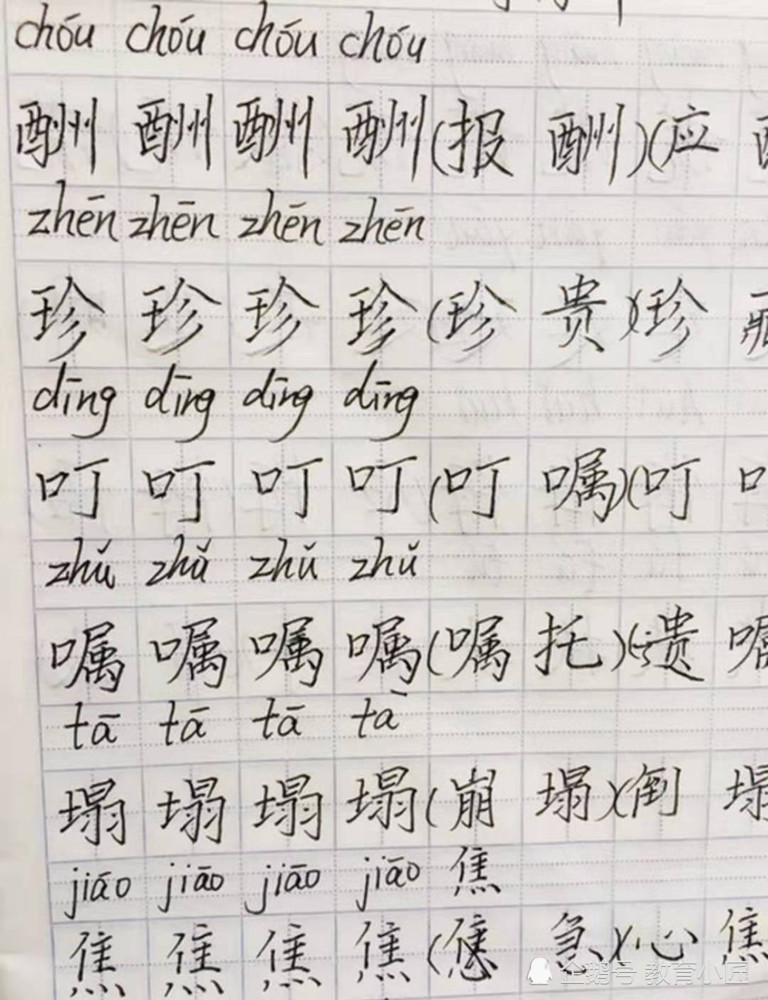 chóu chóu chóu chóu
酬 酬 酬 酬(报 酬)(应
zhēn zhēn zhēn zhēn
珍 珍 珍 珍(珍 贵)(珍
dīng dīng dīng dīng
叮 叮 叮 叮(叮 嘱)(叮
zhǔ zhǔ zhǔ zhǔ
嘱 嘱 嘱 嘱(嘱 托)(遗 嘱
tā tā tā tā
塌 塌 塌 塌(崩 塌)(倒 塌
jiāo jiāo jiāo jiāo 焦
焦 焦 焦 焦( 急)(心 焦
企鹅号 教育小屋